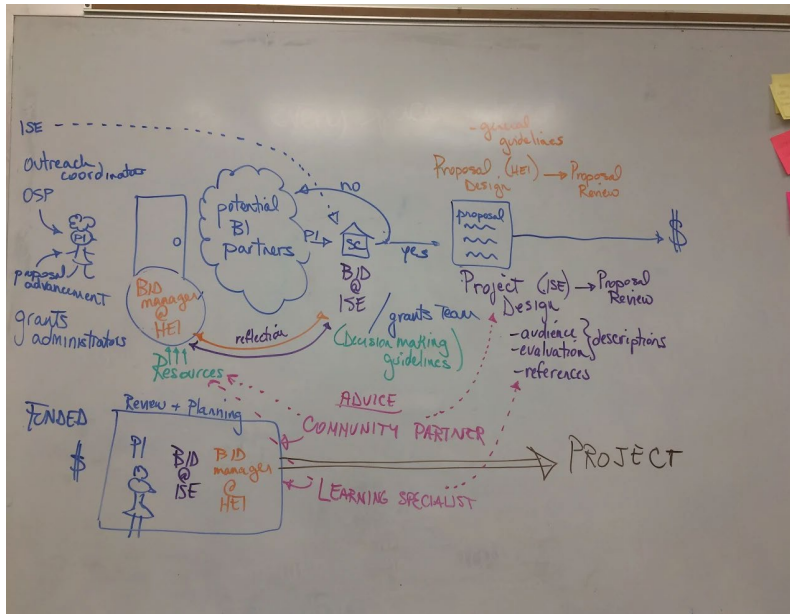 ISE
Outreach
coordinator
OSP
PI
proposal
advancement
grants
administrators
BID
manager
@
HEI
Resources
potential
BI
partners
PI
no
SC
yes
BID
@
ISE
reflection
grants Team
(Decision making
guidelines)
- general
guidelines
Proposal (HEI) → Proposal
Design Review
proposal
$
Project (ISE) → Proposal
Design Review
- audience
- evaluation } descriptions
- references
ADVICE
COMMUNITY PARTNER
LEARNING SPECIALIST
FUNDED
$
Review + Planning
PI
BID
@
ISE
BID
manager
@
HEI
PROJECT